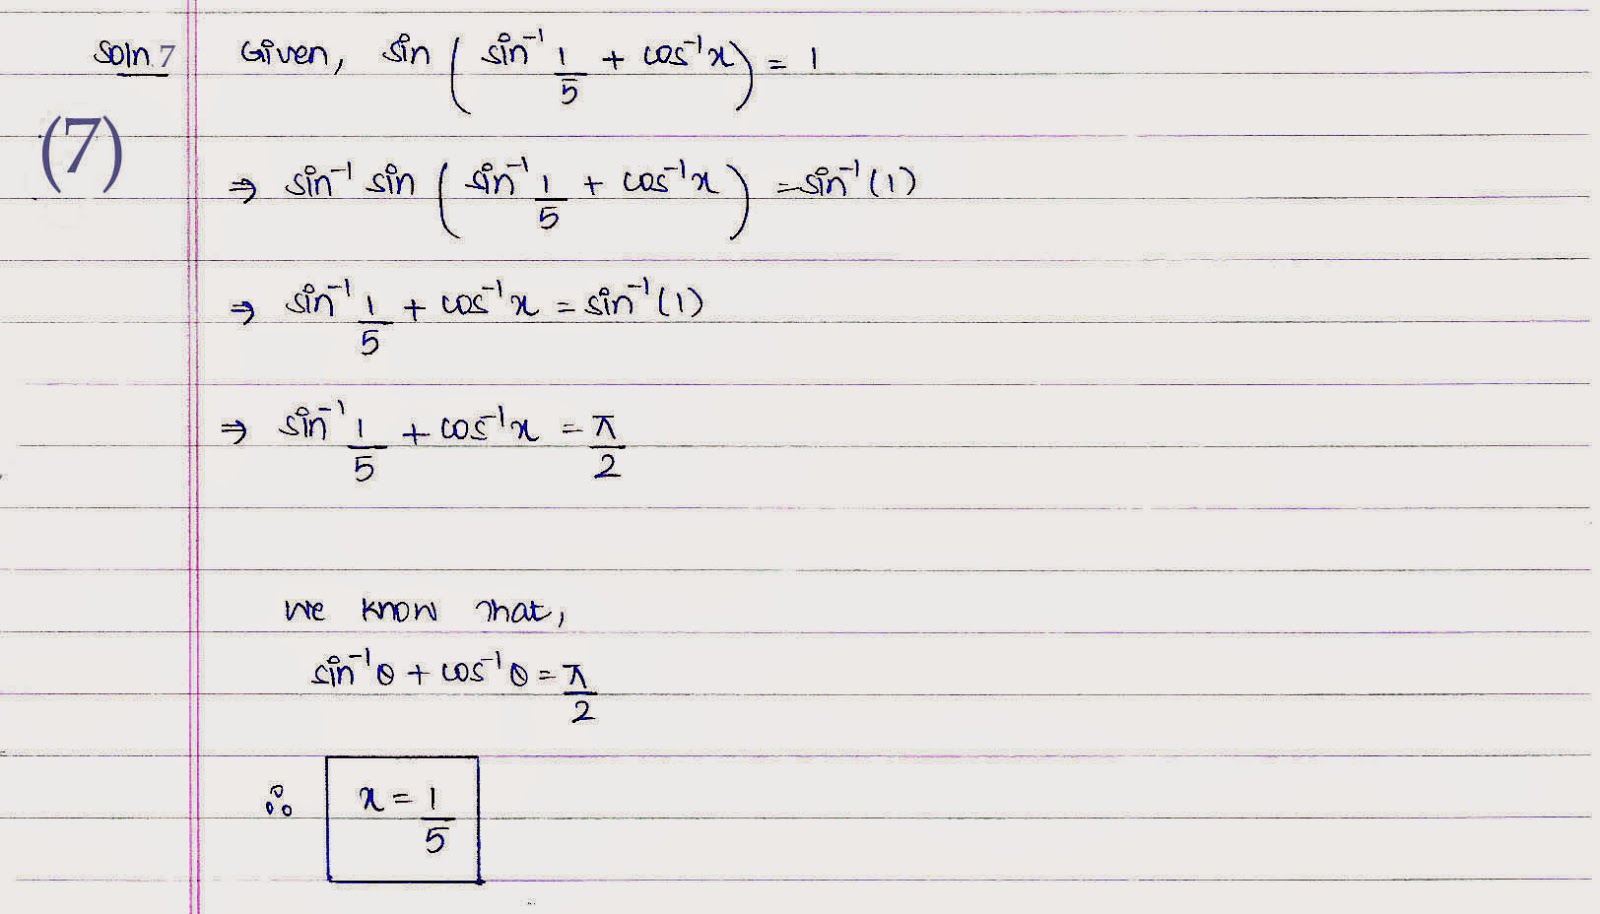 Soln.7 Given, sin (sin⁻¹ 1/5 + cos⁻¹x) = 1
(7)
⇒ sin⁻¹ sin (sin⁻¹ 1/5 + cos⁻¹x) = sin⁻¹(1)
⇒ sin⁻¹ 1/5 + cos⁻¹x = sin⁻¹(1)
⇒ sin⁻¹ 1/5 + cos⁻¹x = π/2
We know that,
sin⁻¹θ + cos⁻¹θ = π/2
∴ x = 1/5